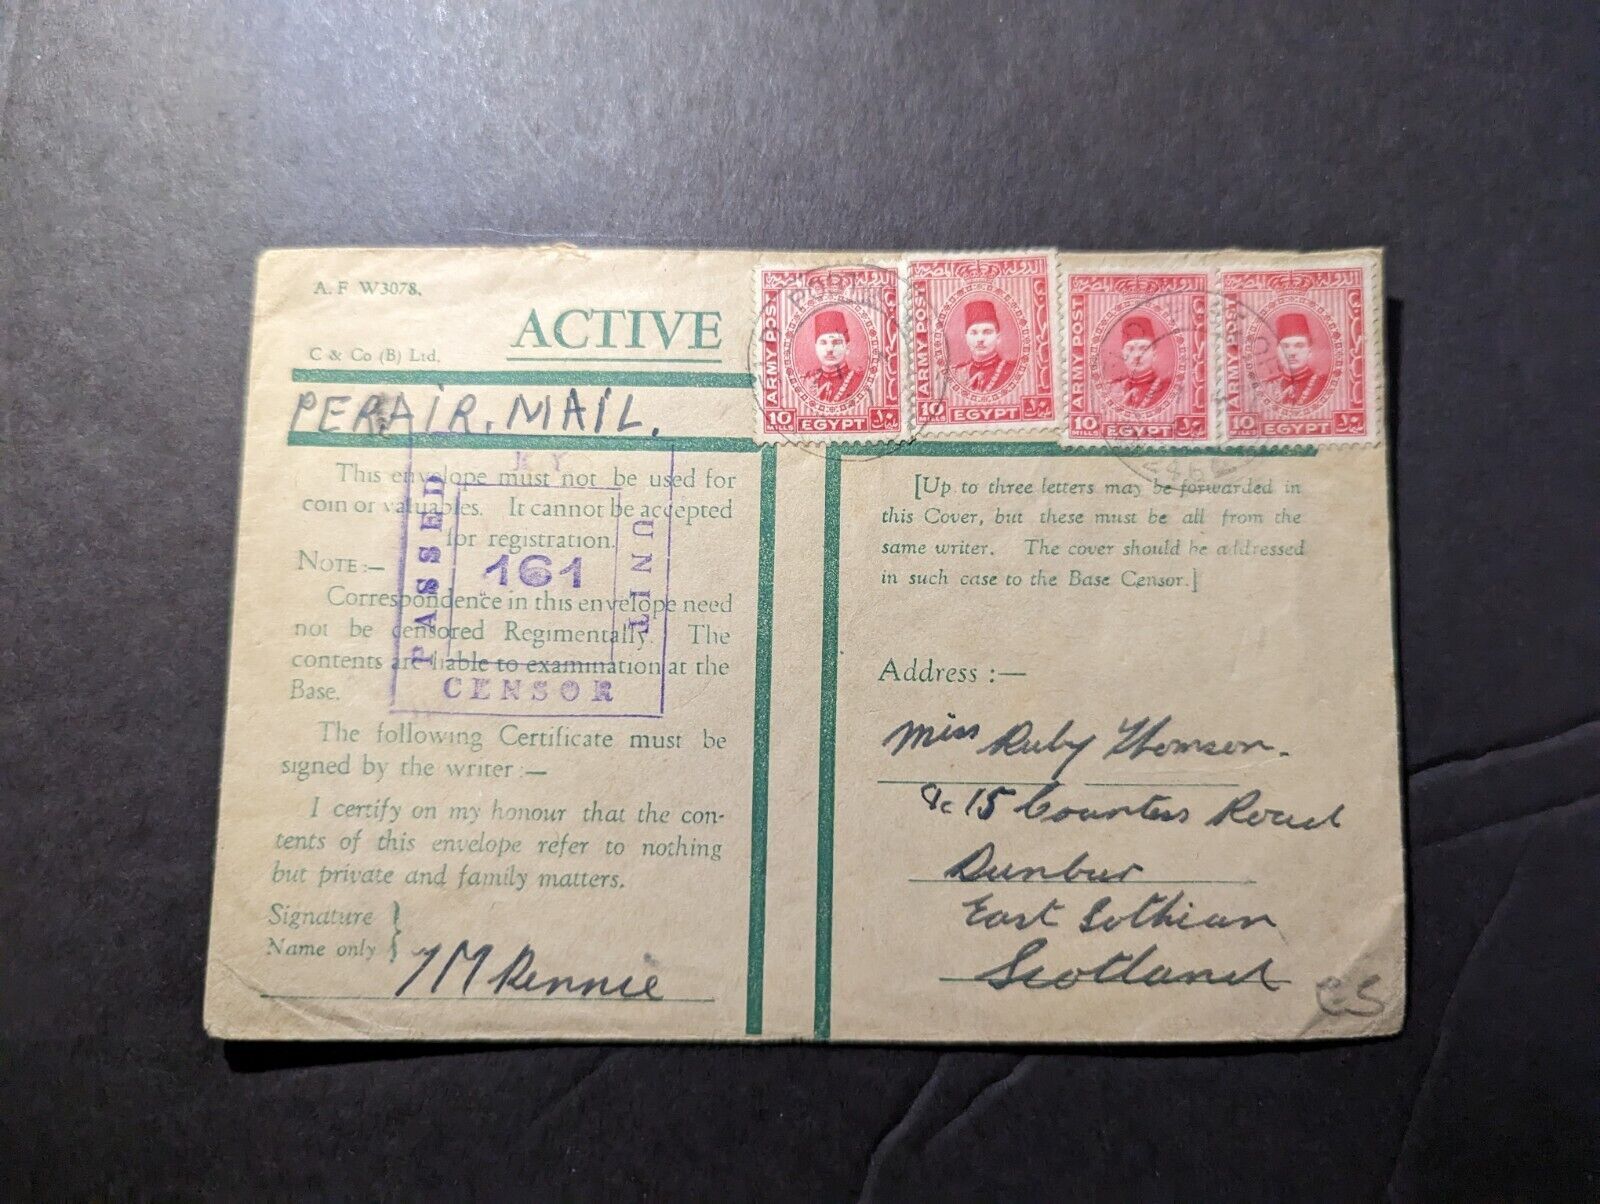 A. F W3078.
C & Co (B) Ltd.
ACTIVE
PER AIR. MAIL.
This envelope must not be used for
coin or valuables. It cannot be accepted
for registration.
NOTE:—
Correspondence in this envelope need
not be censored Regimentally. The
contents are liable to examination at the
Base.
The following Certificate must be
signed by the writer:—
I certify on my honour that the con-
tents of this envelope refer to nothing
but private and family matters.
Signature
Name only }
M Rennie
PASSED
BY
UNIT
161
CENSOR
ARMY POST
الدولة المصرية
10 MILLS EGYPT ١٠
ARMY POST
الدولة المصرية
10 MILLS EGYPT ١٠
ARMY POST
الدولة المصرية
10 MILLS EGYPT ١٠
ARMY POST
الدولة المصرية
10 MILLS EGYPT ١٠
[Up to three letters may be forwarded in
this Cover, but these must be all from the
same writer. The cover should be addressed
in such case to the Base Censor.]
Address :—
Miss Ruby Thomson.
15 Countess Road
Dunbar
East Lothian
Scotland